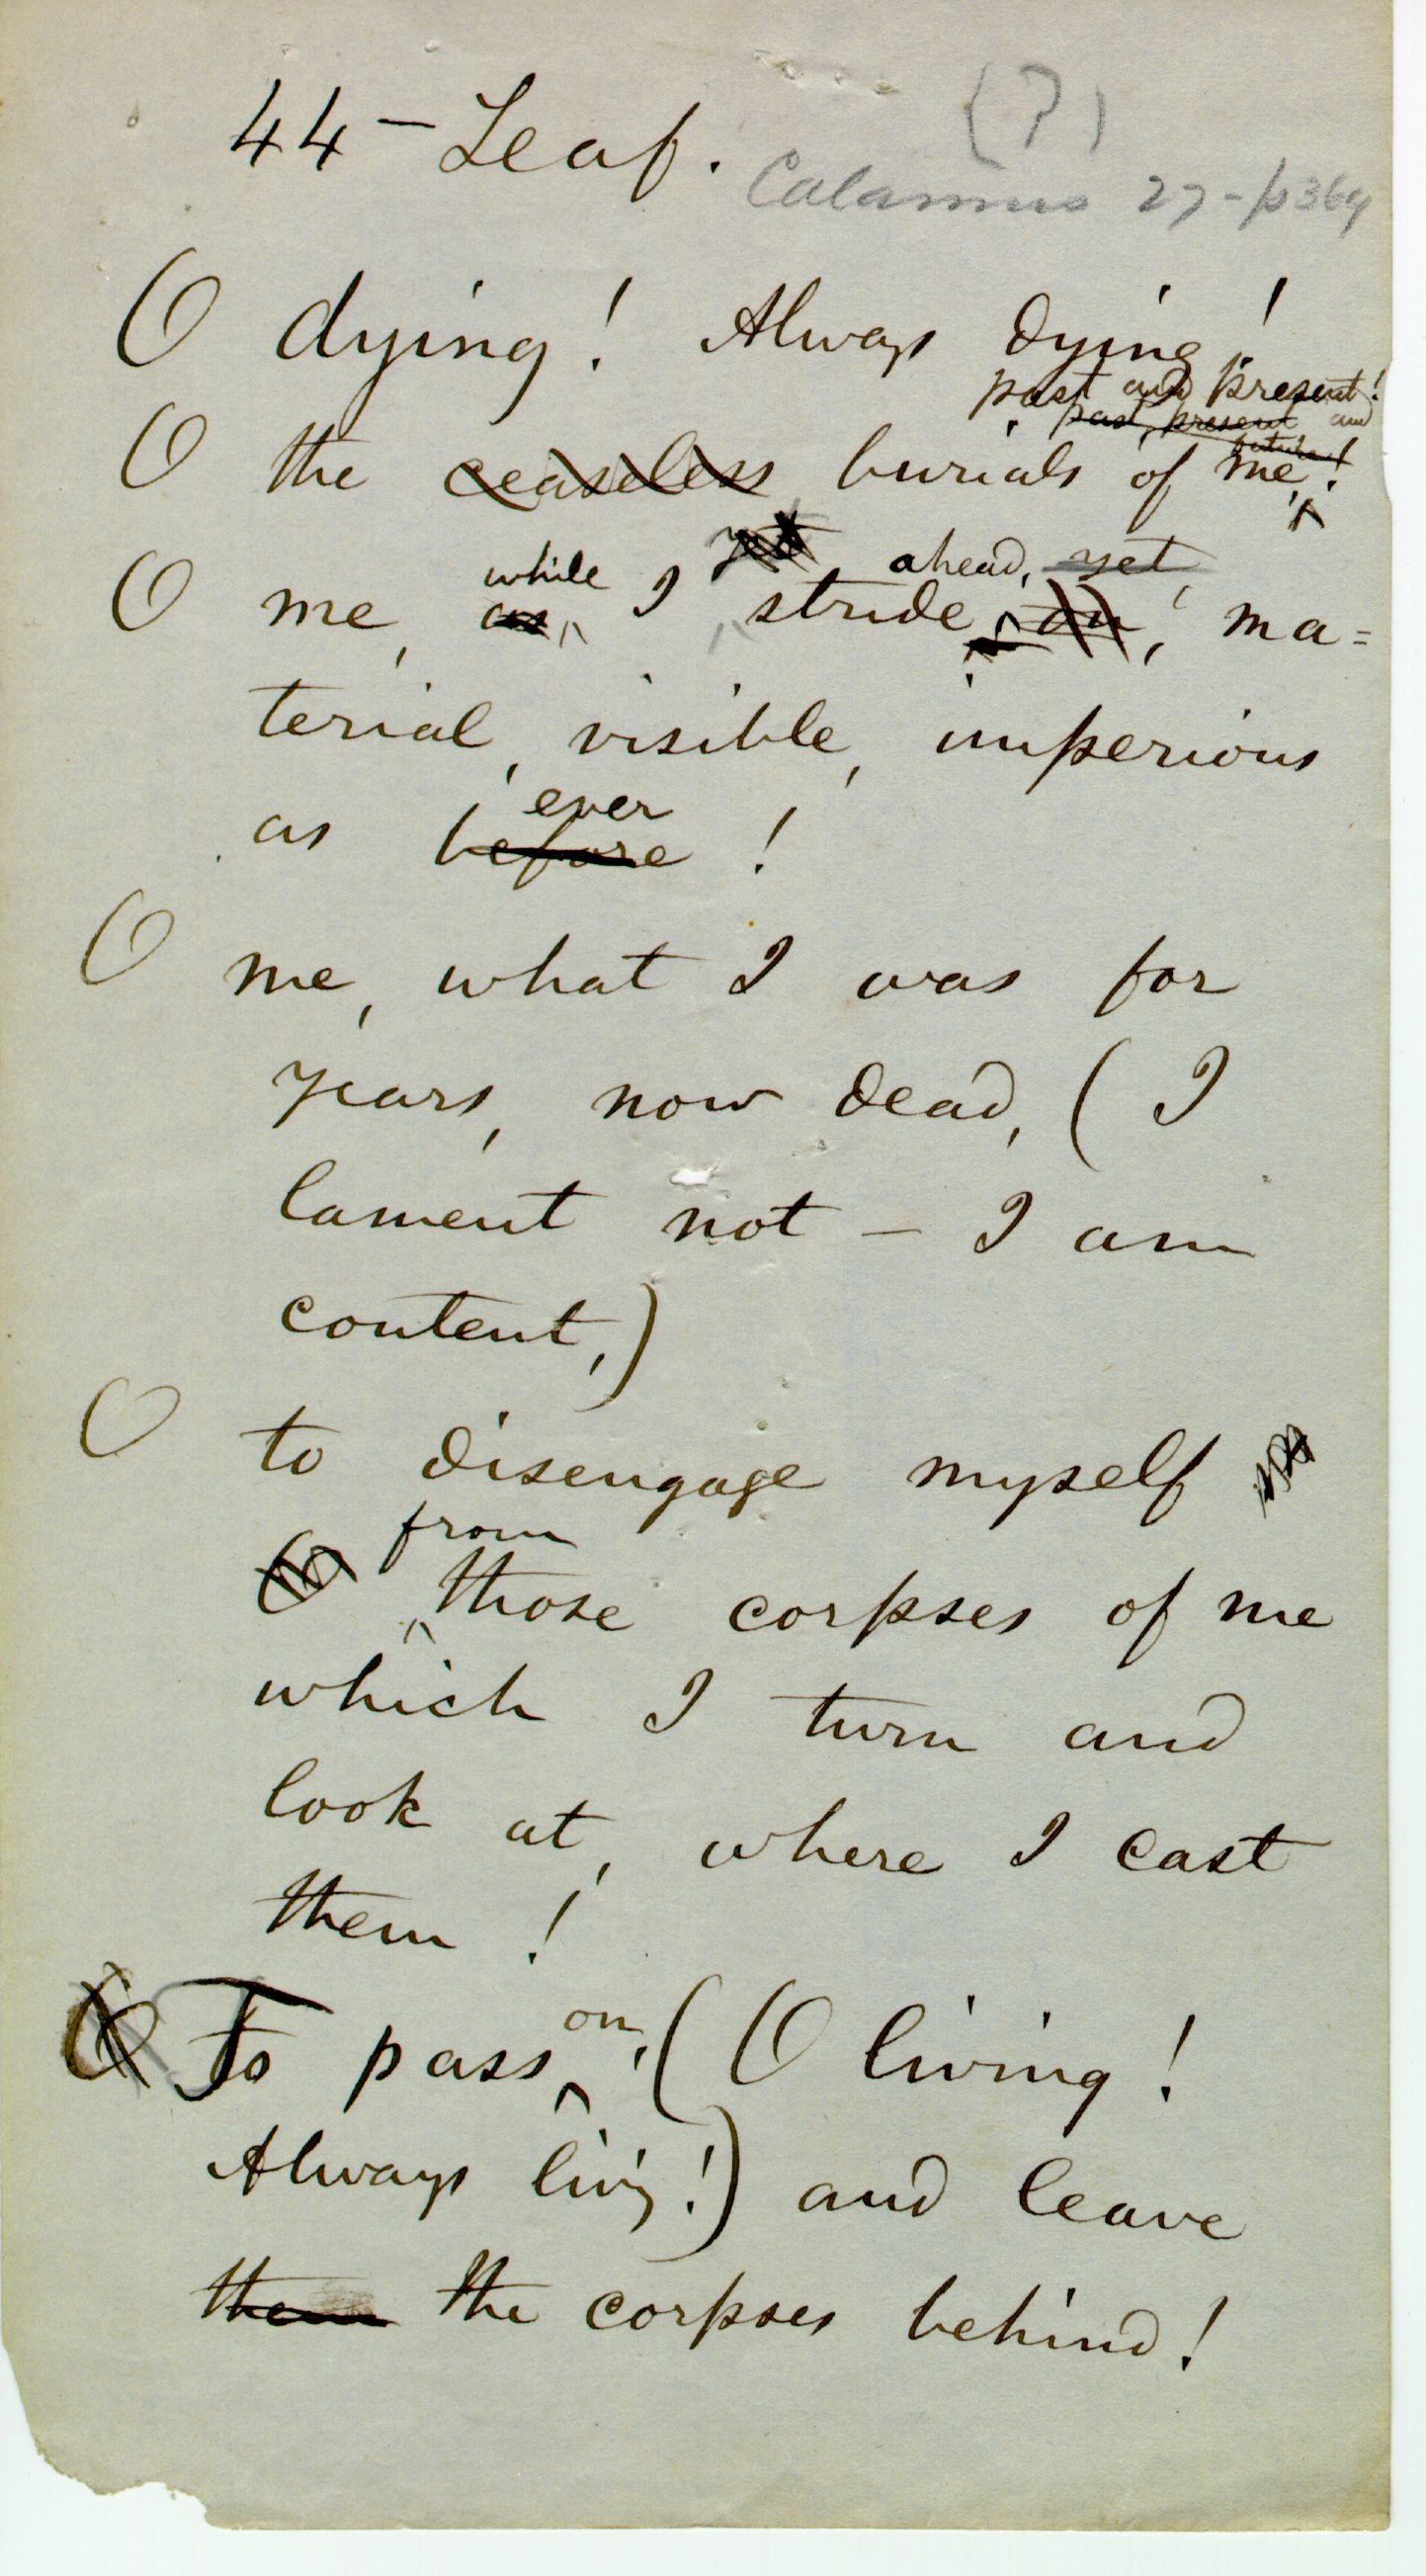 44 – Leaf.
(?)
Calamus 27 - p 364
O dying! Always dying!
past and present!
past, present and
future!
O the ceaseless burials of me!
while yet ahead, yet,
O me, as I stride on, ma=
terial, visible, imperious
ever
as before!
O me, what I was for
years, now dead, (I
lament not – I am
content,)
O to disengage myself
from
O those corpses of me
which I turn and
look at, where I cast
them!
on,
O To pass, (O living!
Always livig!) and leave
them the corpses behind!